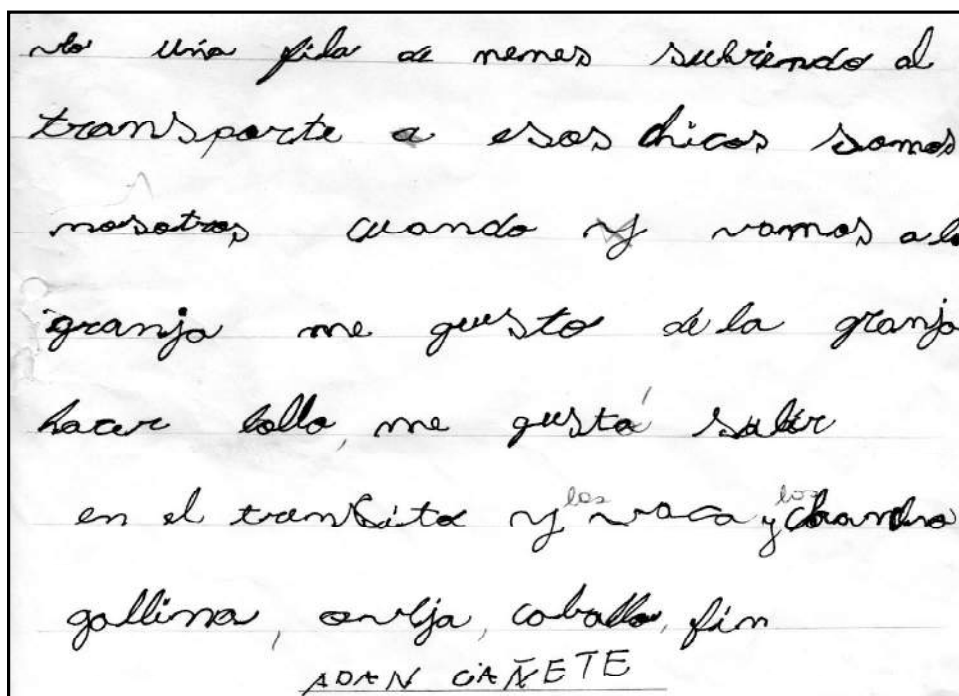 una fila de nenes subiendo al
transporte a esos chicos somos
nosotros cuando y vamos a la
granja me gusto de la granja
hacer me gustó subir
en el y las vaca y los chancho
gallina, oveja, caballo, fin
ADAN CAÑETE